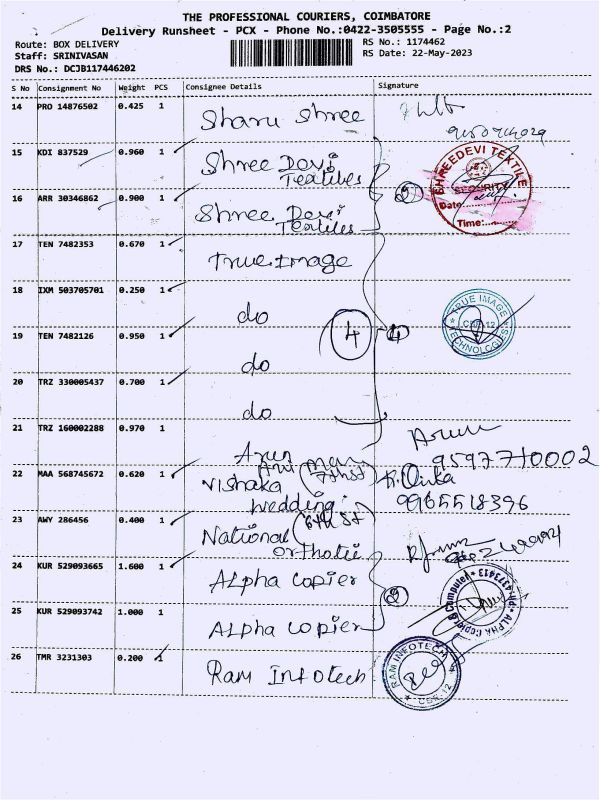 THE PROFESSIONAL COURIERS, COIMBATORE
Delivery Runsheet - PCX - Phone No.:0422-3505555 - Page No.:2
Route: BOX DELIVERY
RS No.: 1174462
Staff: SRINIVASAN
RS Date: 22-May-2023
DRS No.: DCJB117446202
S No Consignment No Weight PCS Consignee Details Signature
14 PRO 14876502 0.425 1 Sharu Shree
15 KDI 837529 0.960 1 Shree Devi
Textiles
16 ARR 30346862 0.900 1 Shree Devi
Textiles
2
SHREEDEVI TEXTILE
SECURITY
Date
Time:
17 TEN 7482353 0.670 1 True Image
18 IXM 503705701 0.250 1 do
19 TEN 7482126 0.950 1 do
4 4
TRUE IMAGE
CBE-12
TECHNOLOGIES
20 TRZ 330005437 0.700 1 do
21 TRZ 160002288 0.970 1 Arun
Arun
9597710002
22 MAA 568745672 0.620 1 Vishaka
wedding
9965518396
23 AWY 286456 0.400 1 National (6th St)
24 KUR 529093665 1.600 1 Alpha Copier
25 KUR 529093742 1.000 1 Alpha Copier
2
ALPHA Copier & Computer
26 TMR 3231303 0.200 1 Ram Infotech
RAM INFOTECH
CBE-12